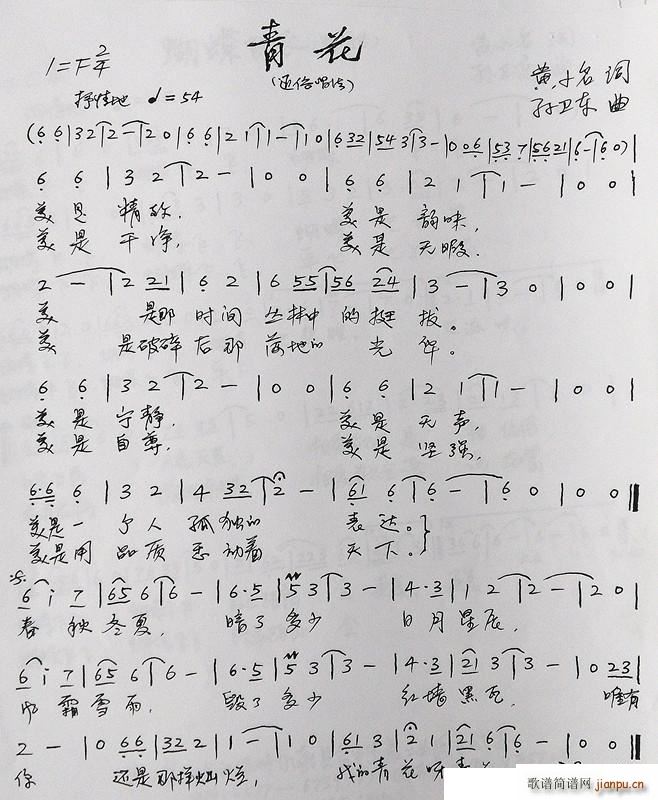 青花
(通俗唱法)
1=F 2/4
抒情地 ♩=54
黄小名 词
孙卫东 曲
(6 6|3 2 2-|2 0|6 6|2 1 1-|1 0|6 32|54 3 3-|0 06|53 7|5621|6-|6 0)|
6 6|3 2|2-|0 0|6 6|2 1|1-|0 0|
美是 精致, 美是 韵味,
美是 干净, 美是 无暇,
2-|2 21|6 2|6 55|56 24|3-|3 0|0 0|
美 是那时间丛林中的挺拔。
美 是破碎后那落地的光华。
6 6|3 2|2-|0 0|6 6|2 1|1-|0 0|
美是 宁静, 美是 无声,
美是 自尊, 美是 坚强,
6·6 6|3 2|4 32|2-|61 6|6-|6 0|0 0‖
美是一个人孤独的 表达。
美是用品质感动着 天下。
6 i 7|65 6|6-|6·5|5 3|3-|4·3|1 2|2-|2 0|
春秋冬夏, 暗了多少 日月星辰,
6 i 7|65 6|6-|6·5|5 3|3-|4·3|21 3|3-|0 23|
风霜雪雨, 毁了多少 红墙黑瓦, 唯有
2-|0 66|32 2|1-|1 0|61 3|2 1|21 6|6-|0 0|
你 还是那样灿烂, 我的青花呀
歌谱简谱网
jianpu.cn